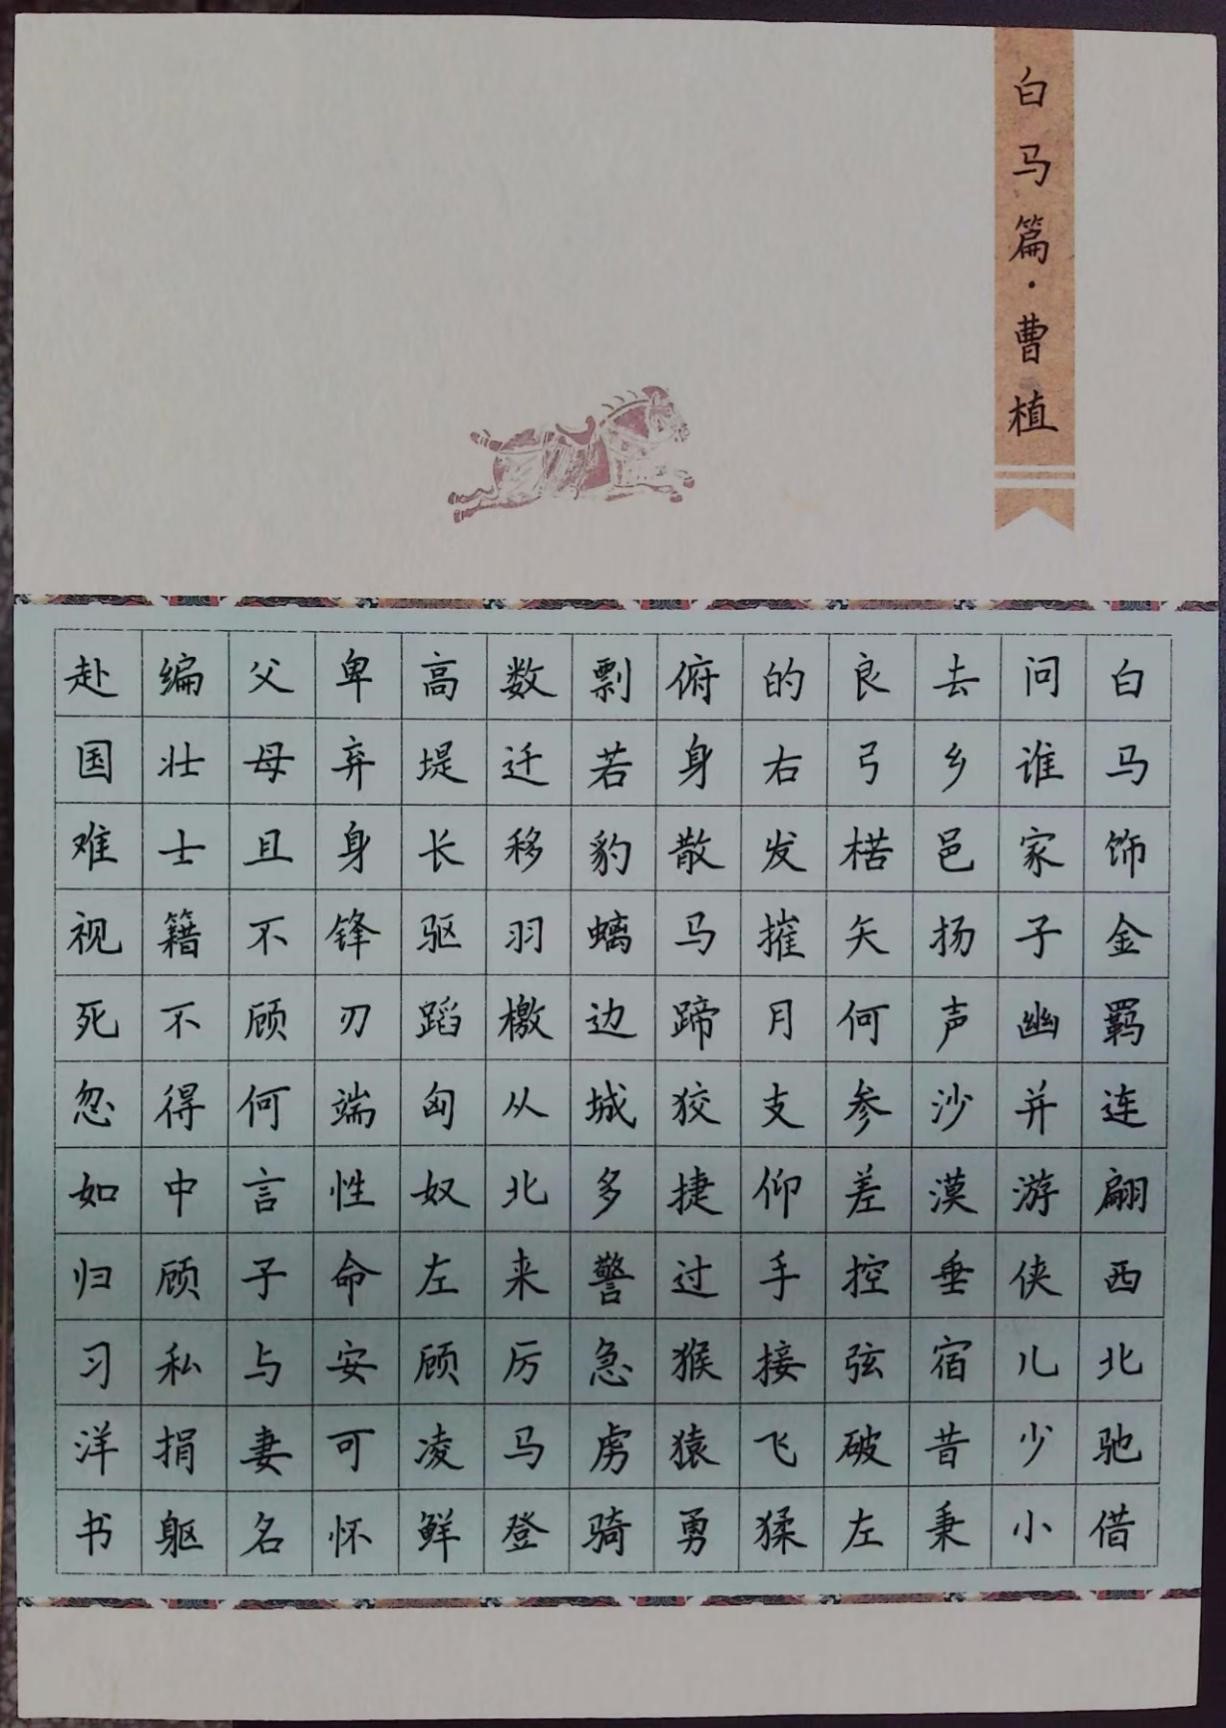 白马篇·曹植
白马饰金羁连翩西北驰借
问谁家子幽并游侠儿少小
去乡邑扬声沙漠垂宿昔秉
良弓楛矢何参差控弦破左
的右发摧月支仰手接飞猱
俯身散马蹄狡捷过猴猿勇
剽若豹螭边城多警急虏骑
数迁移羽檄从北来厉马登
高堤长驱蹈匈奴左顾凌鲜
卑弃身锋刃端性命安可怀
父母且不顾何言子与妻名
编壮士籍不得中顾私捐躯
赴国难视死忽如归习洋书